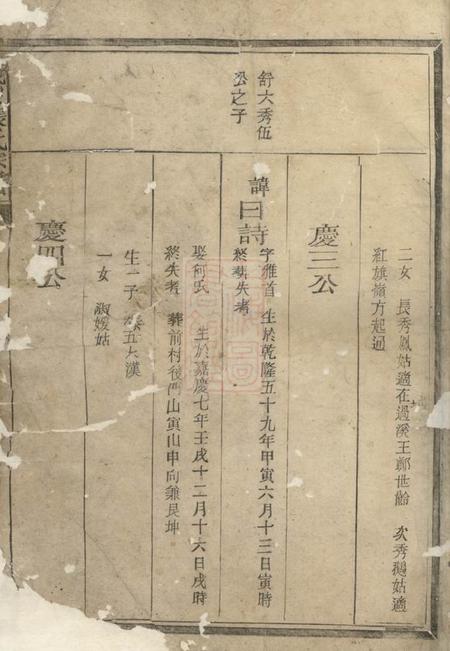 二女 長秀鳳姑適在過溪王鄭世齡 次秀鵝姑適
紅旗嶺方起通
慶三公
舒六秀伍
公之子
諱曰詩
字雅首 生於乾隆五十九年甲寅六月十三日寅時
終葬失考
娶何氏 生於嘉慶七年壬戌十二月十六日戌時
終失考 葬前村後門山寅山申向兼艮坤
生一子 五漢
一女 淑媛姑
慶四公